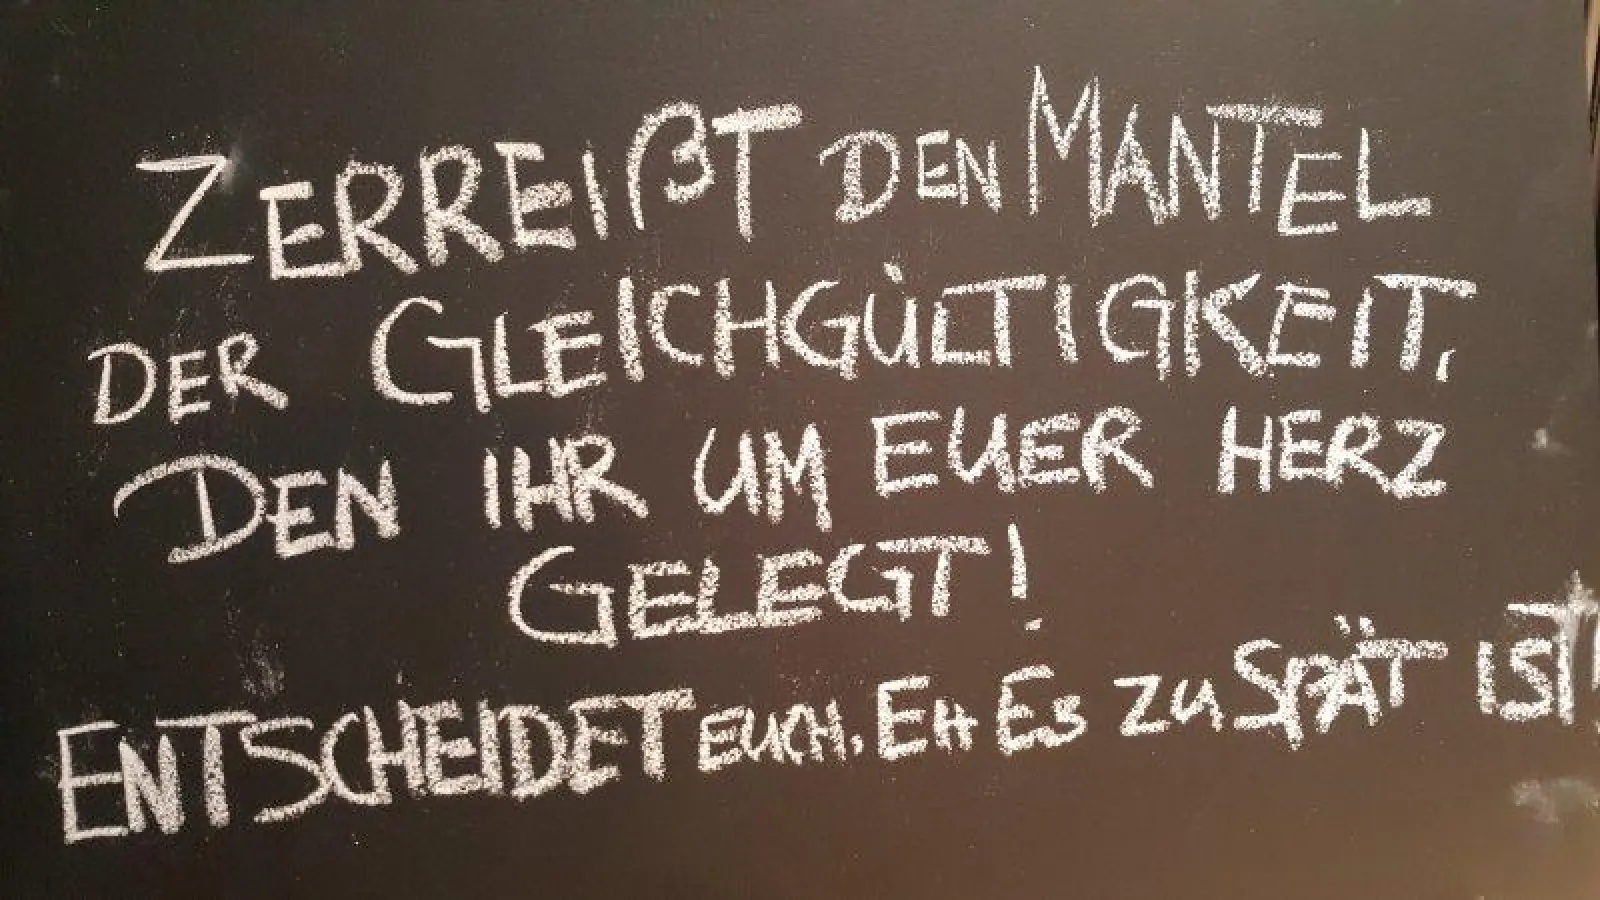 ZERREIßT DEN MANTEL
DER GLEICHGÜLTIGKEIT,
DEN IHR UM EUER HERZ
GELEGT!
ENTSCHEIDET EUCH, EH ES ZU SPÄT IST!